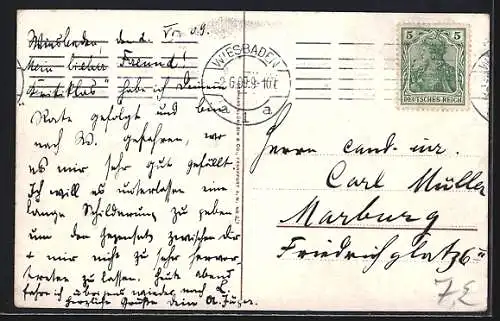 Wiesbaden, den 1. VI. 09.
Mein lieber Freund!
habe ich Deinem
Rate gefolgt und bin
nach W. gefahren, wo
es mir sehr gut gefällt.
Ich will es unterlassen eine
lange Schilderung zu geben
um den Gegensatz zwischen Dir
+ mir nicht zu sehr hervor-
treten zu lassen. Heute abend
fahre ich übrigens wieder nach L.
Herzliche Grüße Dein A.
WIESBADEN
1
a a
5 5
DEUTSCHES REICH
Herrn cand. iur.
Carl Müller
Marburg
Friedrichplatz 6